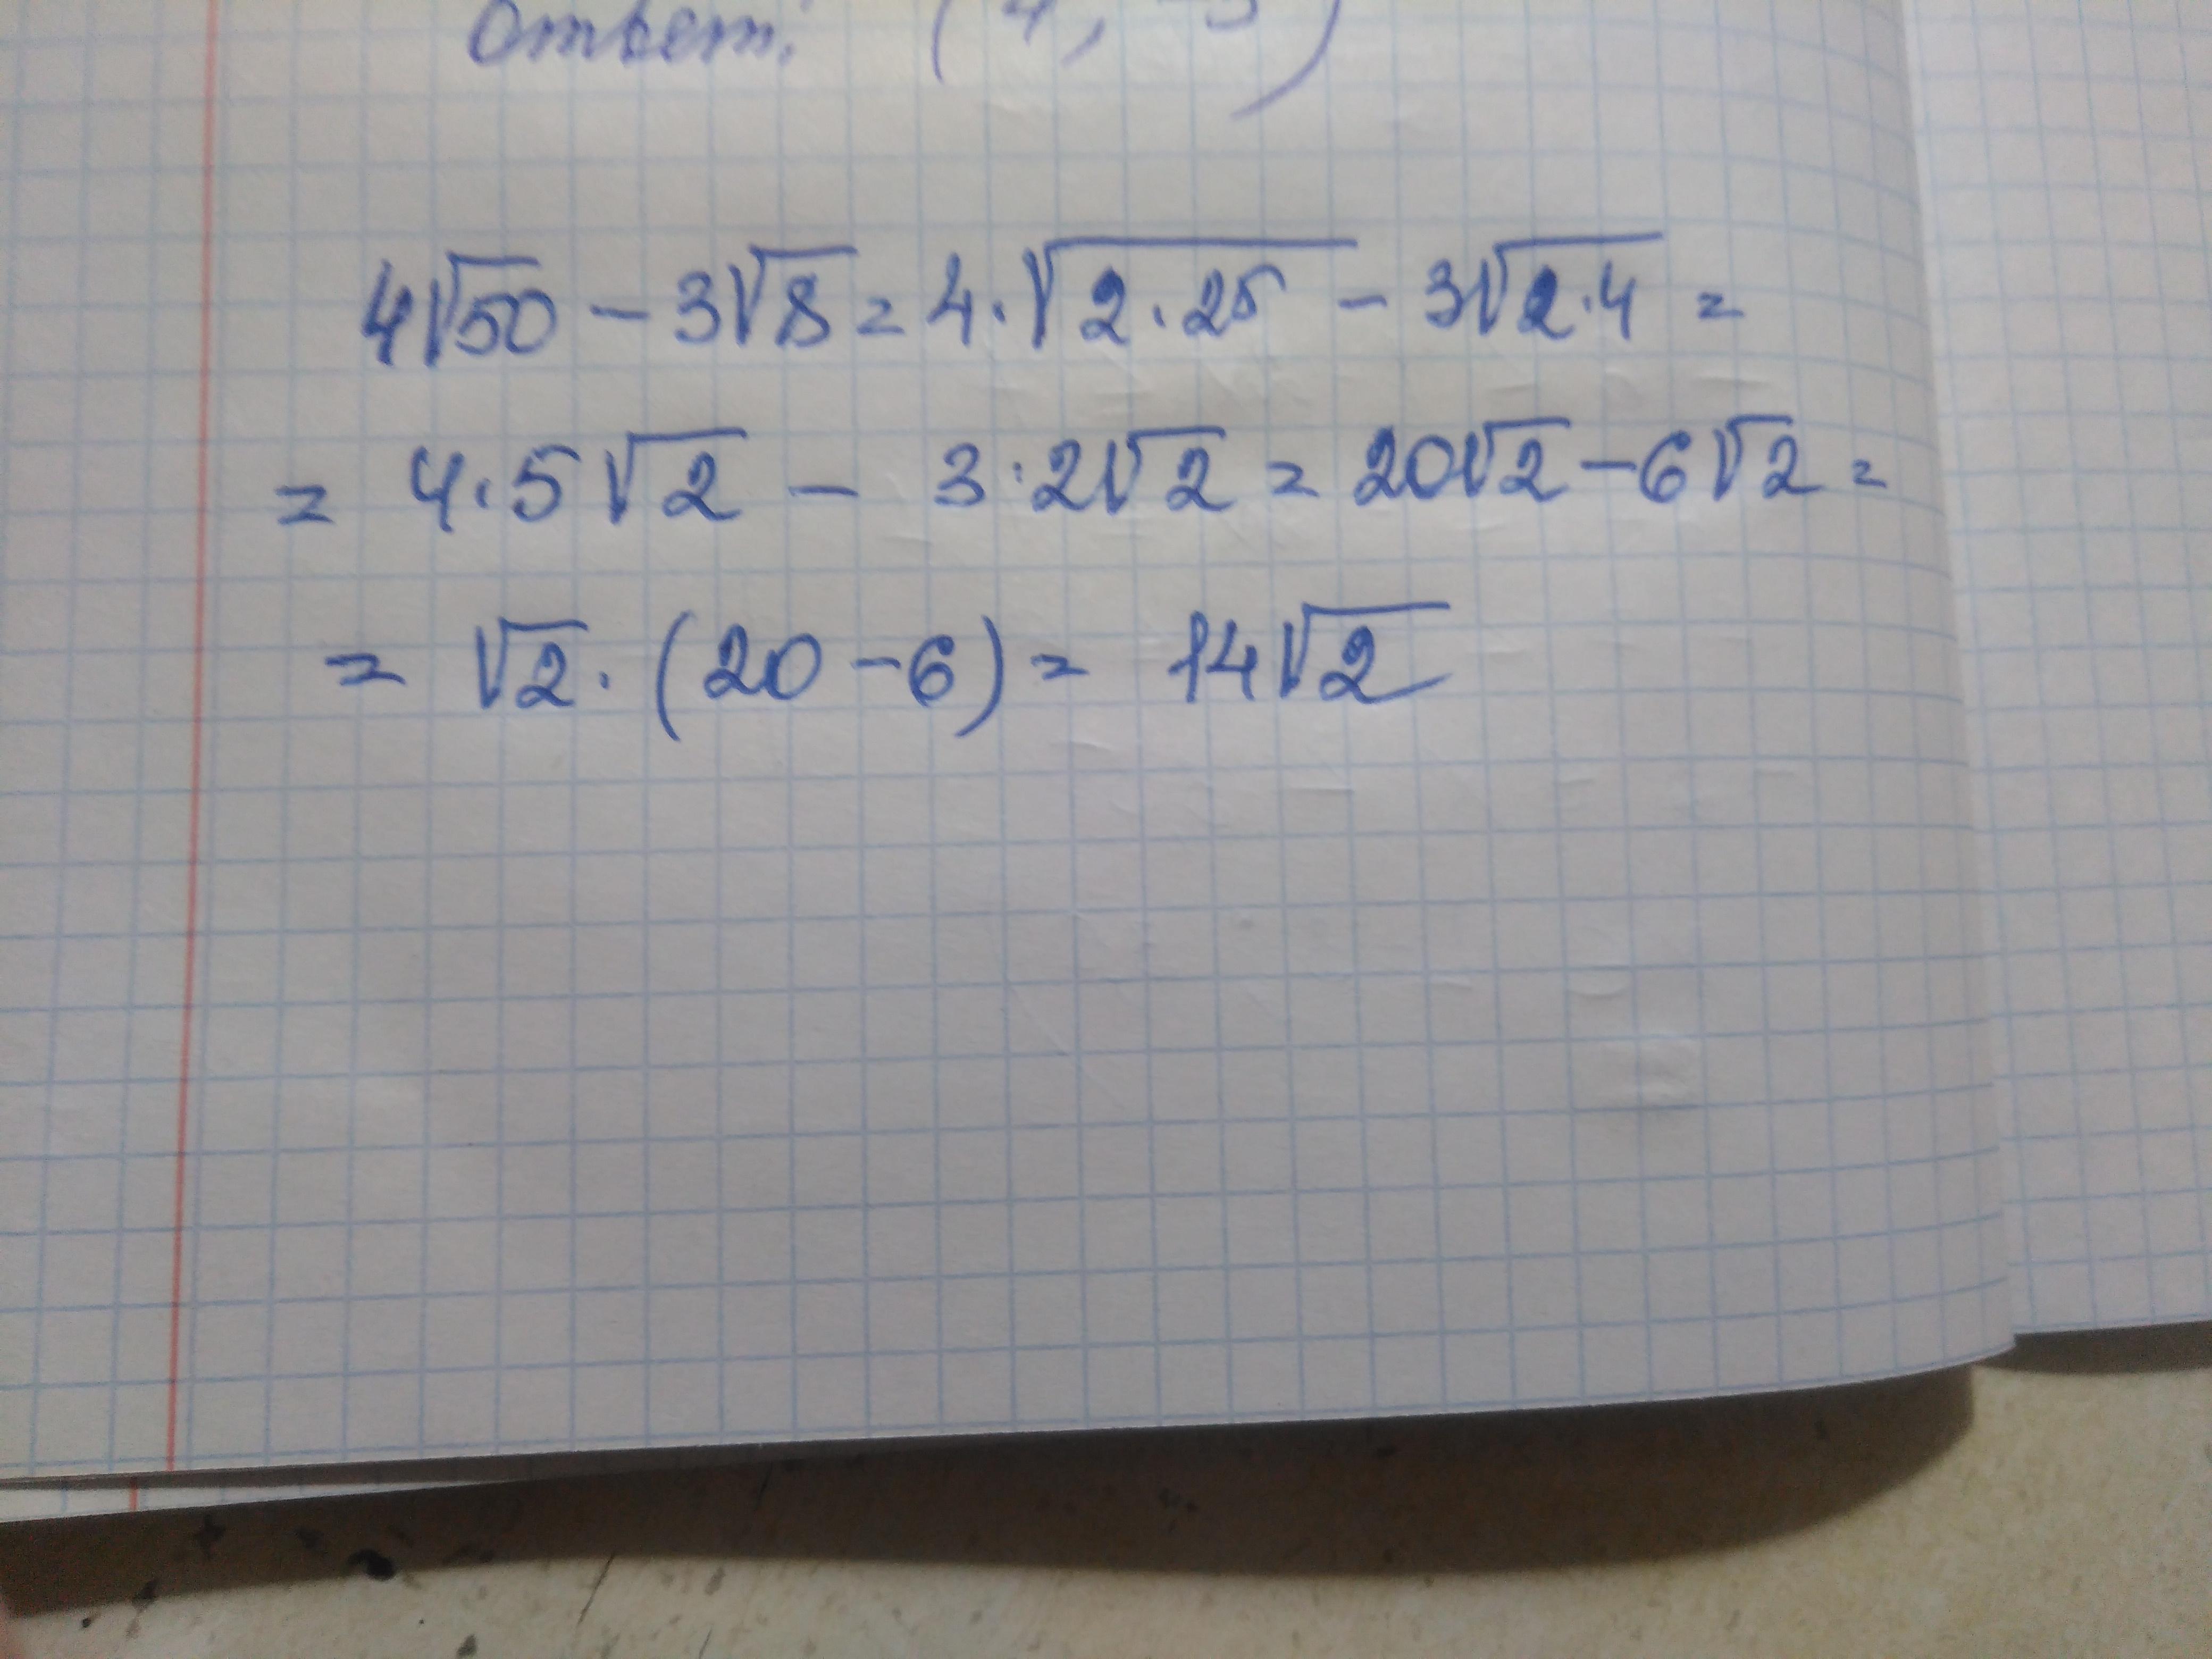 Ответ: (4; -3)
4√50 - 3√8 = 4·√2·25 - 3√2·4 =
= 4·5√2 - 3·2√2 = 20√2 - 6√2 =
= √2·(20-6) = 14√2